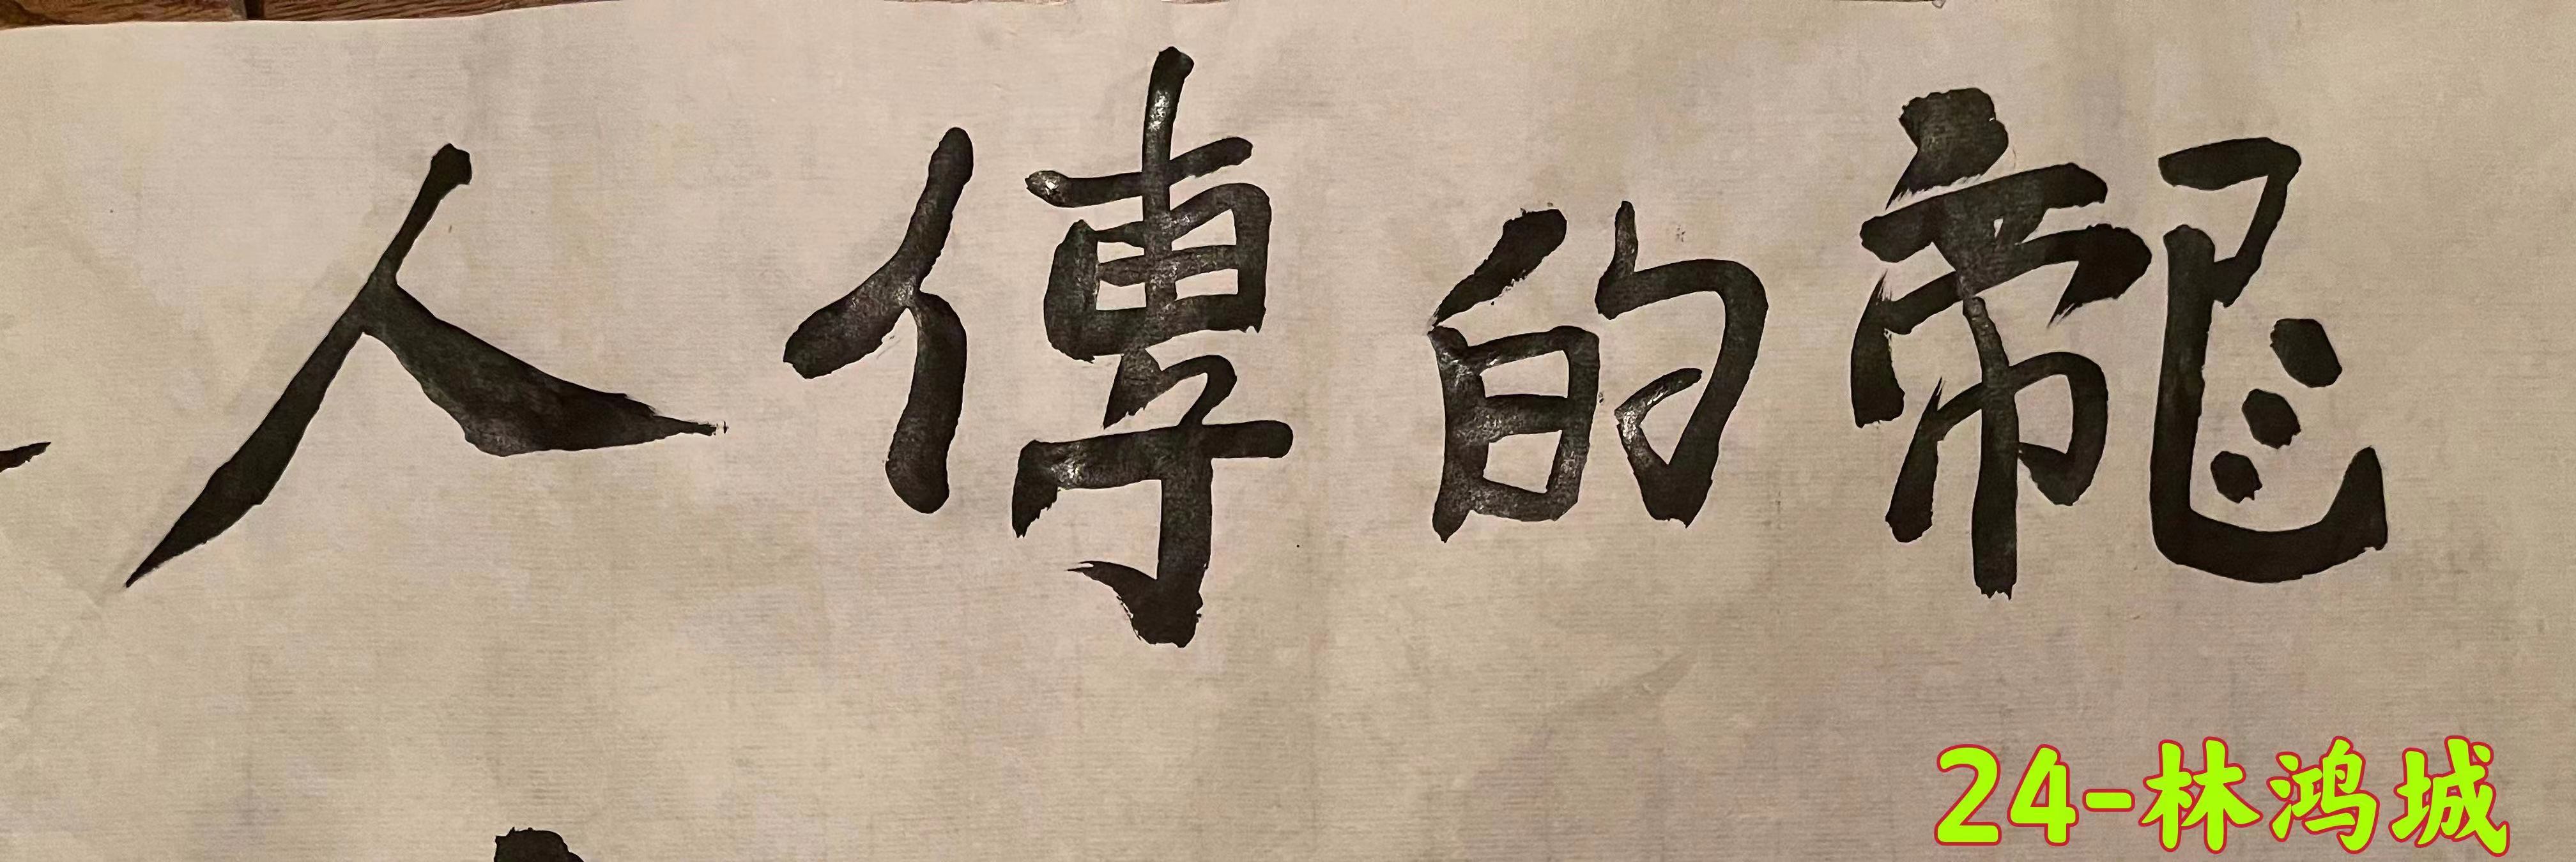 龍的傳人
24-林鸿城